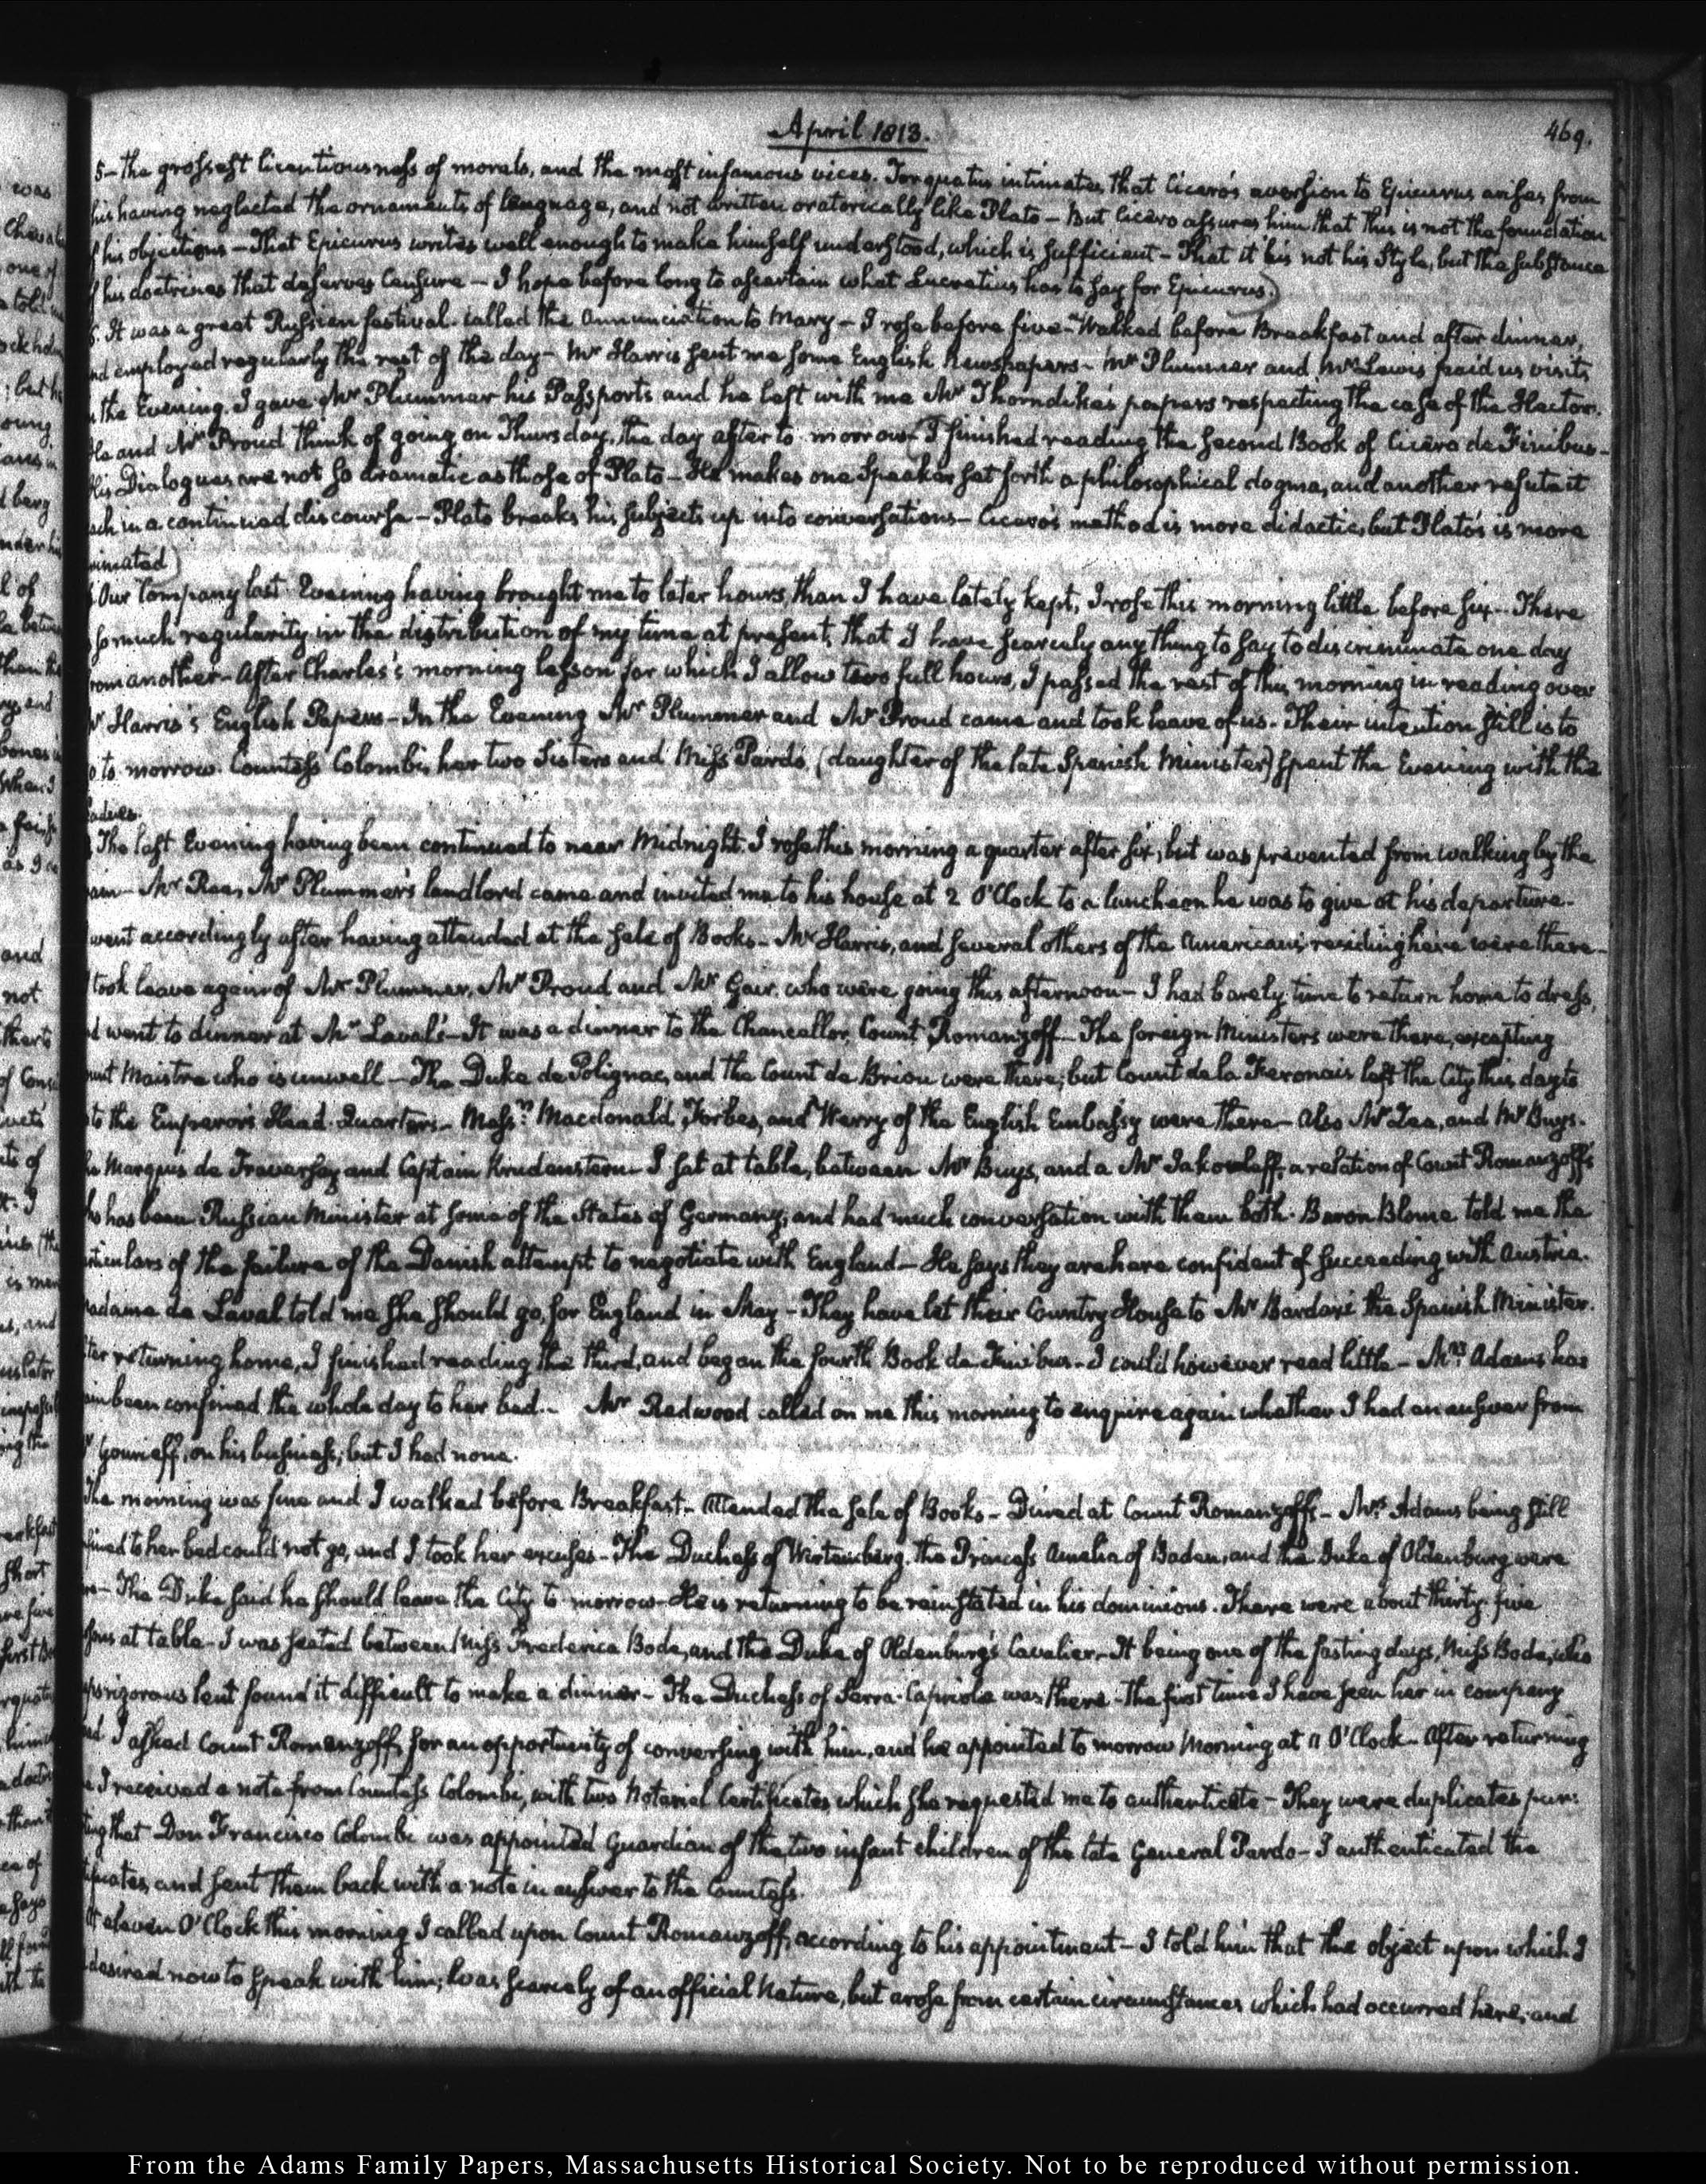 April 1813.
469.
5- the grossest licentiousness of morals, and the most infamous vices. Torquatus intimates, that Cicero's aversion to Epicurus arises from
his having neglected the ornaments of language, and not written oratorically like Plato - But Cicero assures him that this is not the foundation
f his objections - That Epicurus writes well enough to make himself understood, which is sufficient - That it is not his Style, but the substance
f his doctrines that deserves Censure - I hope before long to ascertain what Lucretius has to say for Epicurus.)
6. It was a great Russian festival. called the Annunciation to Mary - I rose before five - Walked before Breakfast and after dinner,
nd employed regularly the rest of the day - Mr Harris sent me some English Newspapers - Mr Plummer and Mr Lewis paid us visits
the Evening. I gave Mr Plummer his Passports and he left with me Mr Thorndike's papers respecting the case of the Hector.
He and Mr Proud think of going on Thursday, the day after to-morrow - (I finished reading the second Book of Cicero de Finibus -
His Dialogues are not so dramatic as those of Plato - He makes one Speaker set forth a philosophical dogma, and another refute it
ach in a continued discourse - Plato breaks his subjects up into conversations - Cicero's method is more didactic, but Plato's is more
nimated)
Our Company last Evening having brought me to later hours, than I have lately kept, I rose this morning little before six - There
so much regularity in the distribution of my time at present, that I have scarcely any thing to say to discriminate one day
rom another - After Charles's morning lesson for which I allow two full hours, I passed the rest of this morning in reading over
Mr Harris's English Papers - In the Evening Mr Plummer and Mr Proud came and took leave of us - Their intention still is to
o to morrow. Countess Colombi, her two Sisters and Miss Pardo, (daughter of the late Spanish Minister) spent the Evening with the
adies.
The last Evening having been continued to near Midnight. I rose this morning a quarter after six; but was prevented from walking by the
ain - Mr Rea, Mr Plummer's landlord came and invited me to his house at 2 O'Clock to a luncheon he was to give at his departure -
went accordingly after having attended at the sale of Books - Mr Harris, and several others of the Americans residing here were there -
took leave again of Mr Plummer, Mr Proud and Mr Gair. who were going this afternoon - I had barely time to return home to dress,
d went to dinner at Mr Laval's - It was a dinner to the Chancellor, Count Romanzoff - The foreign Ministers were there, excepting
unt Maistre who is unwell - The Duke de Polignac, and the Count de Brion were there; but Count de la Feronais left the City this day to
to the Emperor's Head-Quarters - Messrs Macdonald, Forbes, and Werry of the English Embassy were there - also Mr Zea, and Mr Buys.
he Marquis de Traversay and Captain Krudenstern - I sat at table, between Mr Buys, and a Mr Jakowleff, a relation of Count Romanzoff's
ho has been Russian Minister at some of the States of Germany; and had much conversation with them both. Baron Blome told me the
rticulars of the failure of the Danish attempt to negotiate with England - He says they are here confident of succeeding with Austria.
adame de Laval told me she should go, for England in May - They have let their Country House to Mr Bardaxi the Spanish Minister.
ter returning home, I finished reading the third, and began the fourth Book de Finibus - I could however read little - Mrs Adams has
ain been confined the whole day to her bed - Mr Redwood called on me this morning to enquire again whether I had an answer from
Mr Gourieff, on his business; but I had none.
The morning was fine and I walked before Breakfast - Attended the sale of Books - Dined at Count Romanzoff's - Mrs Adams being still
fined to her bed could not go, and I took her excuses - The Duchess of Wirtemberg, the Princess Amelia of Baden, and the Duke of Oldenburg were
re - The Duke said he should leave the City to morrow - He is returning to be reinstated in his dominions. There were about thirty-five
sons at table - I was seated between Miss Frederica Bode, and the Duke of Oldenburg's Cavalier - It being one of the fasting days, Miss Bode, who
eps rigorous lent found it difficult to make a dinner - The Duchess of Serra-Capriola was there - the first time I have seen her in company
I asked Count Romanzoff, for an opportunity of conversing with him, and he appointed to morrow Morning at 11 O'Clock - After returning
e I received a note from Countess Colombi, with two Notarial Certificates which she requested me to authenticate - They were duplicates pur-
ting that Don Francisco Colombi was appointed Guardian of the two infant children of the late General Pardo - I authenticated the
ficates, and sent them back with a note in answer to the Countess.
At eleven O'Clock this morning I called upon Count Romanzoff, according to his appointment - I told him that the object upon which I
desired now to speak with him; was scarcely of an official Nature, but arose from certain circumstances which had occurred here; and
From the Adams Family Papers, Massachusetts Historical Society. Not to be reproduced without permission.